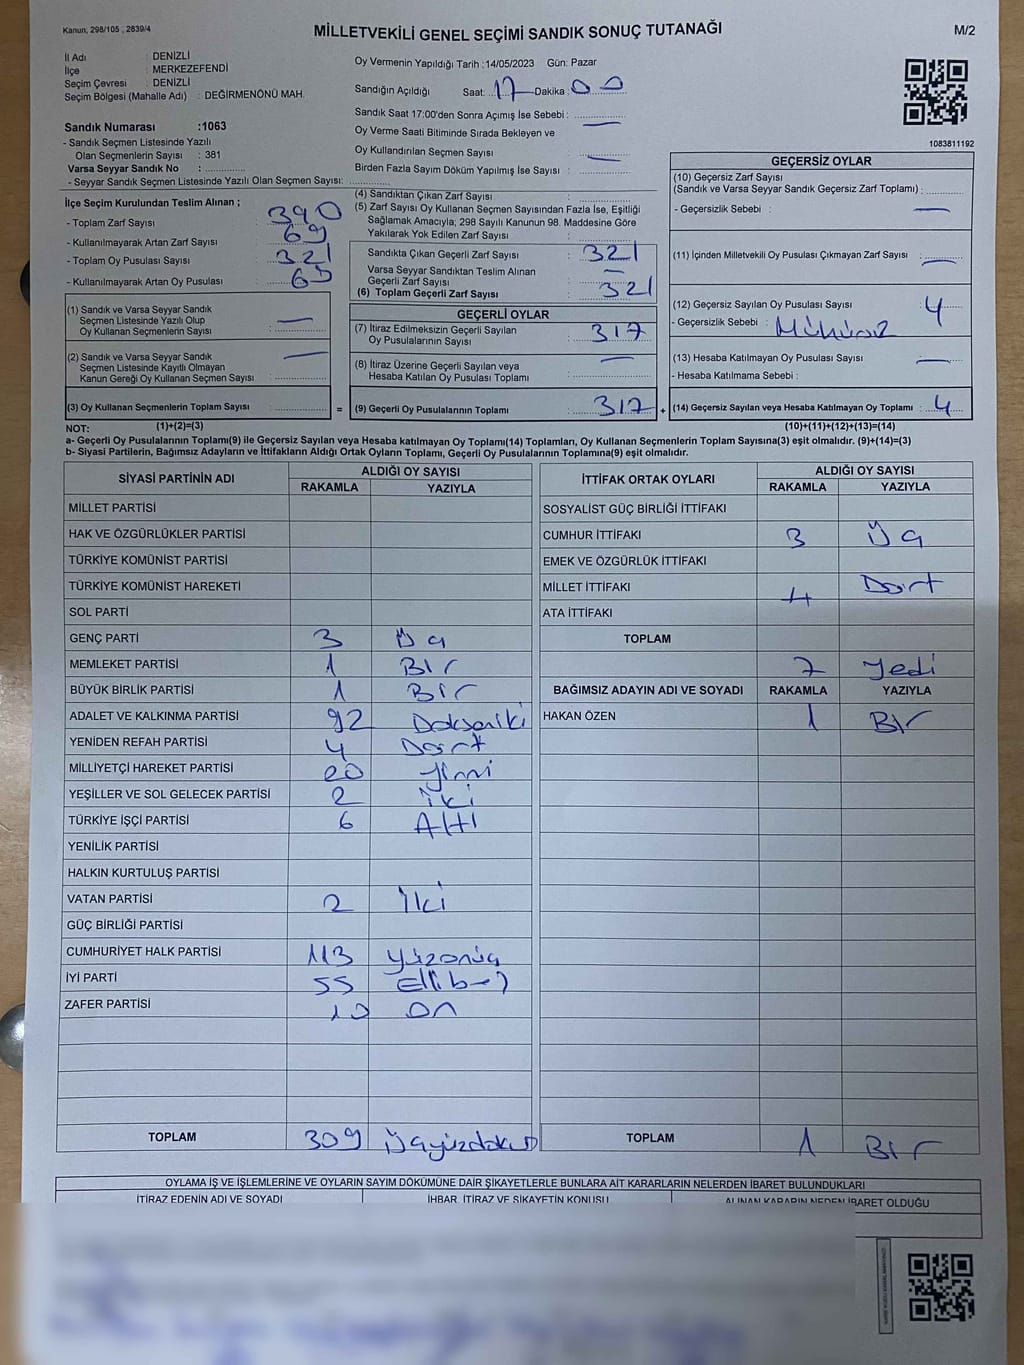 Kanun; 298/105 , 2839/4
MİLLETVEKİLİ GENEL SEÇİMİ SANDIK SONUÇ TUTANAĞI
M/2
İl Adı : DENİZLİ
İlçe : MERKEZEFENDİ
Seçim Çevresi : DENİZLİ
Seçim Bölgesi (Mahalle Adı) : DEĞİRMENÖNÜ MAH.
Sandık Numarası :1063
- Sandık Seçmen Listesinde Yazılı
Olan Seçmenlerin Sayısı : 381
Varsa Seyyar Sandık No :
- Seyyar Sandık Seçmen Listesinde Yazılı Olan Seçmen Sayısı:
Oy Vermenin Yapıldığı Tarih :14/05/2023 Gün: Pazar
Sandığın Açıldığı Saat: 17 Dakika: 00
Sandık Saat 17:00'den Sonra Açımış İse Sebebi : —
Oy Verme Saati Bitiminde Sırada Bekleyen ve
Oy Kullandırılan Seçmen Sayısı : —
Birden Fazla Sayım Döküm Yapılmış İse Sayısı :
1083811192
İlçe Seçim Kurulundan Teslim Alınan ;
- Toplam Zarf Sayısı : 390
- Kullanılmayarak Artan Zarf Sayısı : 69
- Toplam Oy Pusulası Sayısı : 321
- Kullanılmayarak Artan Oy Pusulası :
(1) Sandık ve Varsa Seyyar Sandık
Seçmen Listesinde Yazılı Olup
Oy Kullanan Seçmenlerin Sayısı : —
(2) Sandık ve Varsa Seyyar Sandık
Seçmen Listesinde Kayıtlı Olmayan
Kanun Gereği Oy Kullanan Seçmen Sayısı : —
(3) Oy Kullanan Seçmenlerin Toplam Sayısı :
(4) Sandıktan Çıkan Zarf Sayısı :
(5) Zarf Sayısı Oy Kullanan Seçmen Sayısından Fazla İse, Eşitliği
Sağlamak Amacıyla; 298 Sayılı Kanunun 98. Maddesine Göre
Yakılarak Yok Edilen Zarf Sayısı :
Sandıkta Çıkan Geçerli Zarf Sayısı : 321
Varsa Seyyar Sandıktan Teslim Alınan
Geçerli Zarf Sayısı : —
(6) Toplam Geçerli Zarf Sayısı : 321
GEÇERLİ OYLAR
(7) İtiraz Edilmeksizin Geçerli Sayılan
Oy Pusulalarının Sayısı : 317
(8) İtiraz Üzerine Geçerli Sayılan veya
Hesaba Katılan Oy Pusulası Toplamı : —
= (9) Geçerli Oy Pusulalarının Toplamı : 317
GEÇERSİZ OYLAR
(10) Geçersiz Zarf Sayısı
(Sandık ve Varsa Seyyar Sandık Geçersiz Zarf Toplamı) :
- Geçersizlik Sebebi : —
(11) İçinden Milletvekili Oy Pusulası Çıkmayan Zarf Sayısı : —
(12) Geçersiz Sayılan Oy Pusulası Sayısı : 4
- Geçersizlik Sebebi : Mühürsüz
(13) Hesaba Katılmayan Oy Pusulası Sayısı : —
- Hesaba Katılmama Sebebi :
+ (14) Geçersiz Sayılan veya Hesaba Katılmayan Oy Toplamı : 4
NOT: (1)+(2)=(3) (10)+(11)+(12)+(13)=(14)
a- Geçerli Oy Pusulalarının Toplamı(9) ile Geçersiz Sayılan veya Hesaba katılmayan Oy Toplamı(14) Toplamları, Oy Kullanan Seçmenlerin Toplam Sayısına(3) eşit olmalıdır. (9)+(14)=(3)
b- Siyasi Partilerin, Bağımsız Adayların ve İttifakların Aldığı Ortak Oyların Toplamı, Geçerli Oy Pusulalarının Toplamına(9) eşit olmalıdır.
SİYASİ PARTİNİN ADI ALDIĞI OY SAYISI
RAKAMLA YAZIYLA
MİLLET PARTİSİ
HAK VE ÖZGÜRLÜKLER PARTİSİ
TÜRKİYE KOMÜNİST PARTİSİ
TÜRKİYE KOMÜNİST HAREKETİ
SOL PARTİ
GENÇ PARTİ 3 Üç
MEMLEKET PARTİSİ 1 Bir
BÜYÜK BİRLİK PARTİSİ 1 Bir
ADALET VE KALKINMA PARTİSİ 92 Doksaniki
YENİDEN REFAH PARTİSİ 4 Dört
MİLLİYETÇİ HAREKET PARTİSİ 20 Yirmi
YEŞİLLER VE SOL GELECEK PARTİSİ 2 iki
TÜRKİYE İŞÇİ PARTİSİ 6 Altı
YENİLİK PARTİSİ
HALKIN KURTULUŞ PARTİSİ
VATAN PARTİSİ 2 İki
GÜÇ BİRLİĞİ PARTİSİ
CUMHURİYET HALK PARTİSİ 113 Yüzonüç
İYİ PARTİ 55 Ellibeş
ZAFER PARTİSİ 10 On
TOPLAM 309 Üçyüzdokuz
İTTİFAK ORTAK OYLARI ALDIĞI OY SAYISI
RAKAMLA YAZIYLA
SOSYALİST GÜÇ BİRLİĞİ İTTİFAKI
CUMHUR İTTİFAKI 3 Üç
EMEK VE ÖZGÜRLÜK İTTİFAKI
MİLLET İTTİFAKI 4 Dört
ATA İTTİFAKI
TOPLAM
7 Yedi
BAĞIMSIZ ADAYIN ADI VE SOYADI RAKAMLA YAZIYLA
HAKAN ÖZEN 1 Bir
TOPLAM 1 Bir
OYLAMA İŞ VE İŞLEMLERİNE VE OYLARIN SAYIM DÖKÜMÜNE DAİR ŞİKAYETLERLE BUNLARA AİT KARARLARIN NELERDEN İBARET BULUNDUKLARI
İTİRAZ EDENİN ADI VE SOYADI İHBAR, İTİRAZ VE ŞİKAYETİN KONUSU ALINAN KARARIN NEDEN İBARET OLDUĞU